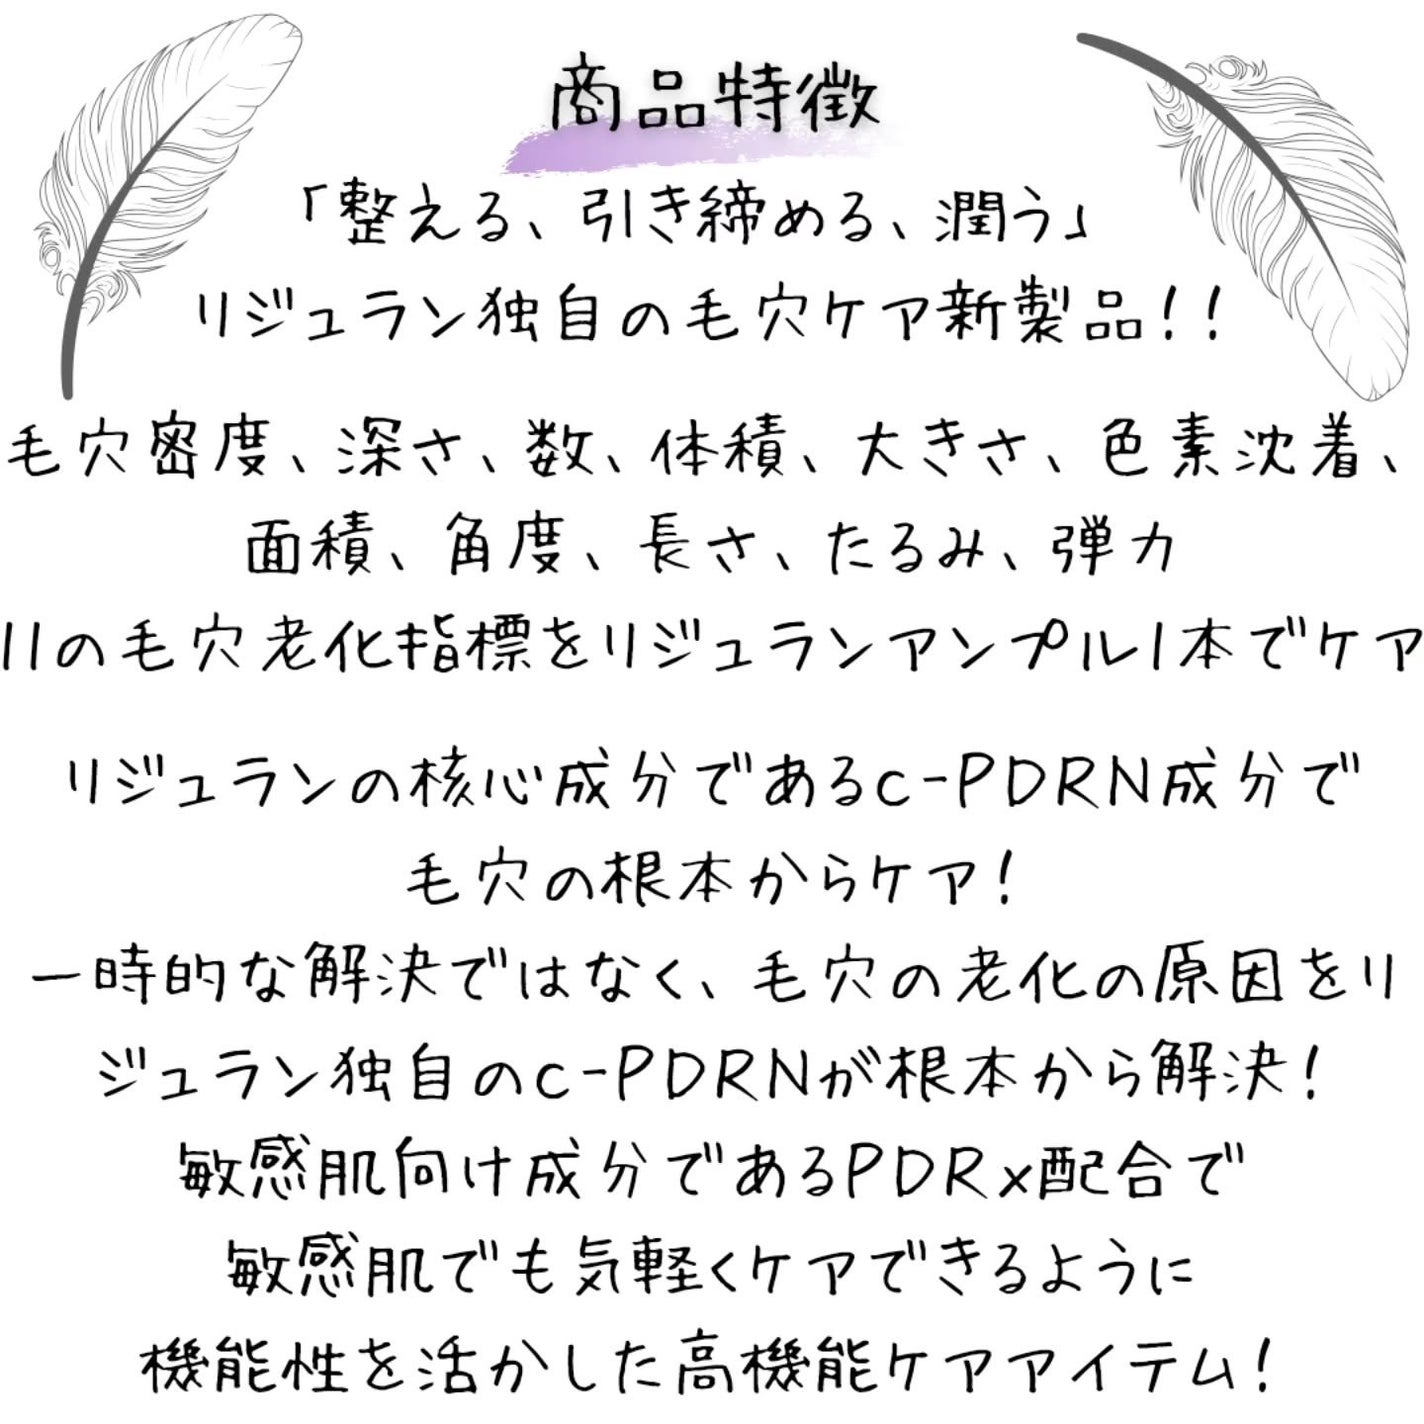 商品特徴
「整える、引き締める、潤う」
リジュラン独自の毛穴ケア新製品！！
毛穴密度、深さ、数、体積、大きさ、色素沈着、
面積、角度、長さ、たるみ、弾力
11の毛穴老化指標をリジュランアンプル1本でケア
リジュランの核心成分であるc-PDRN成分で
毛穴の根本からケア！
一時的な解決ではなく、毛穴の老化の原因をリ
ジュラン独自のc-PDRNが根本から解決！
敏感肌向け成分であるPDRx配合で
敏感肌でも気軽くケアできるように
機能性を活かした高機能ケアアイテム！